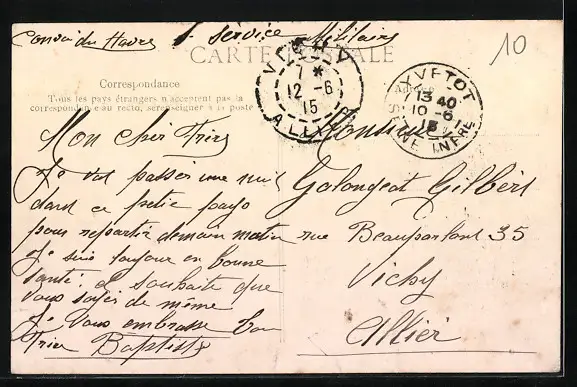 Convoi du Havre Service Militaire
10
CARTE POSTALE
Correspondance
Tous les pays étrangers n'acceptent pas la
correspondance au recto, se renseigner à la poste
VICHY
7 *
12 -6
15
ALLIER
YVETOT
13 40
10 -6
15
SEINE INFRE
Mon cher Frère
Je vai passer une nuit
dans ce petit pays
pour repartir demain matin
Je suis toujour en bonne
santé. e souhaite que
vous soyez de même
Je vous embrasse ton
Frier Baptiste
Monsieur
Galongeat Gilbert
rue Beauparlant 35
Vichy
Allier